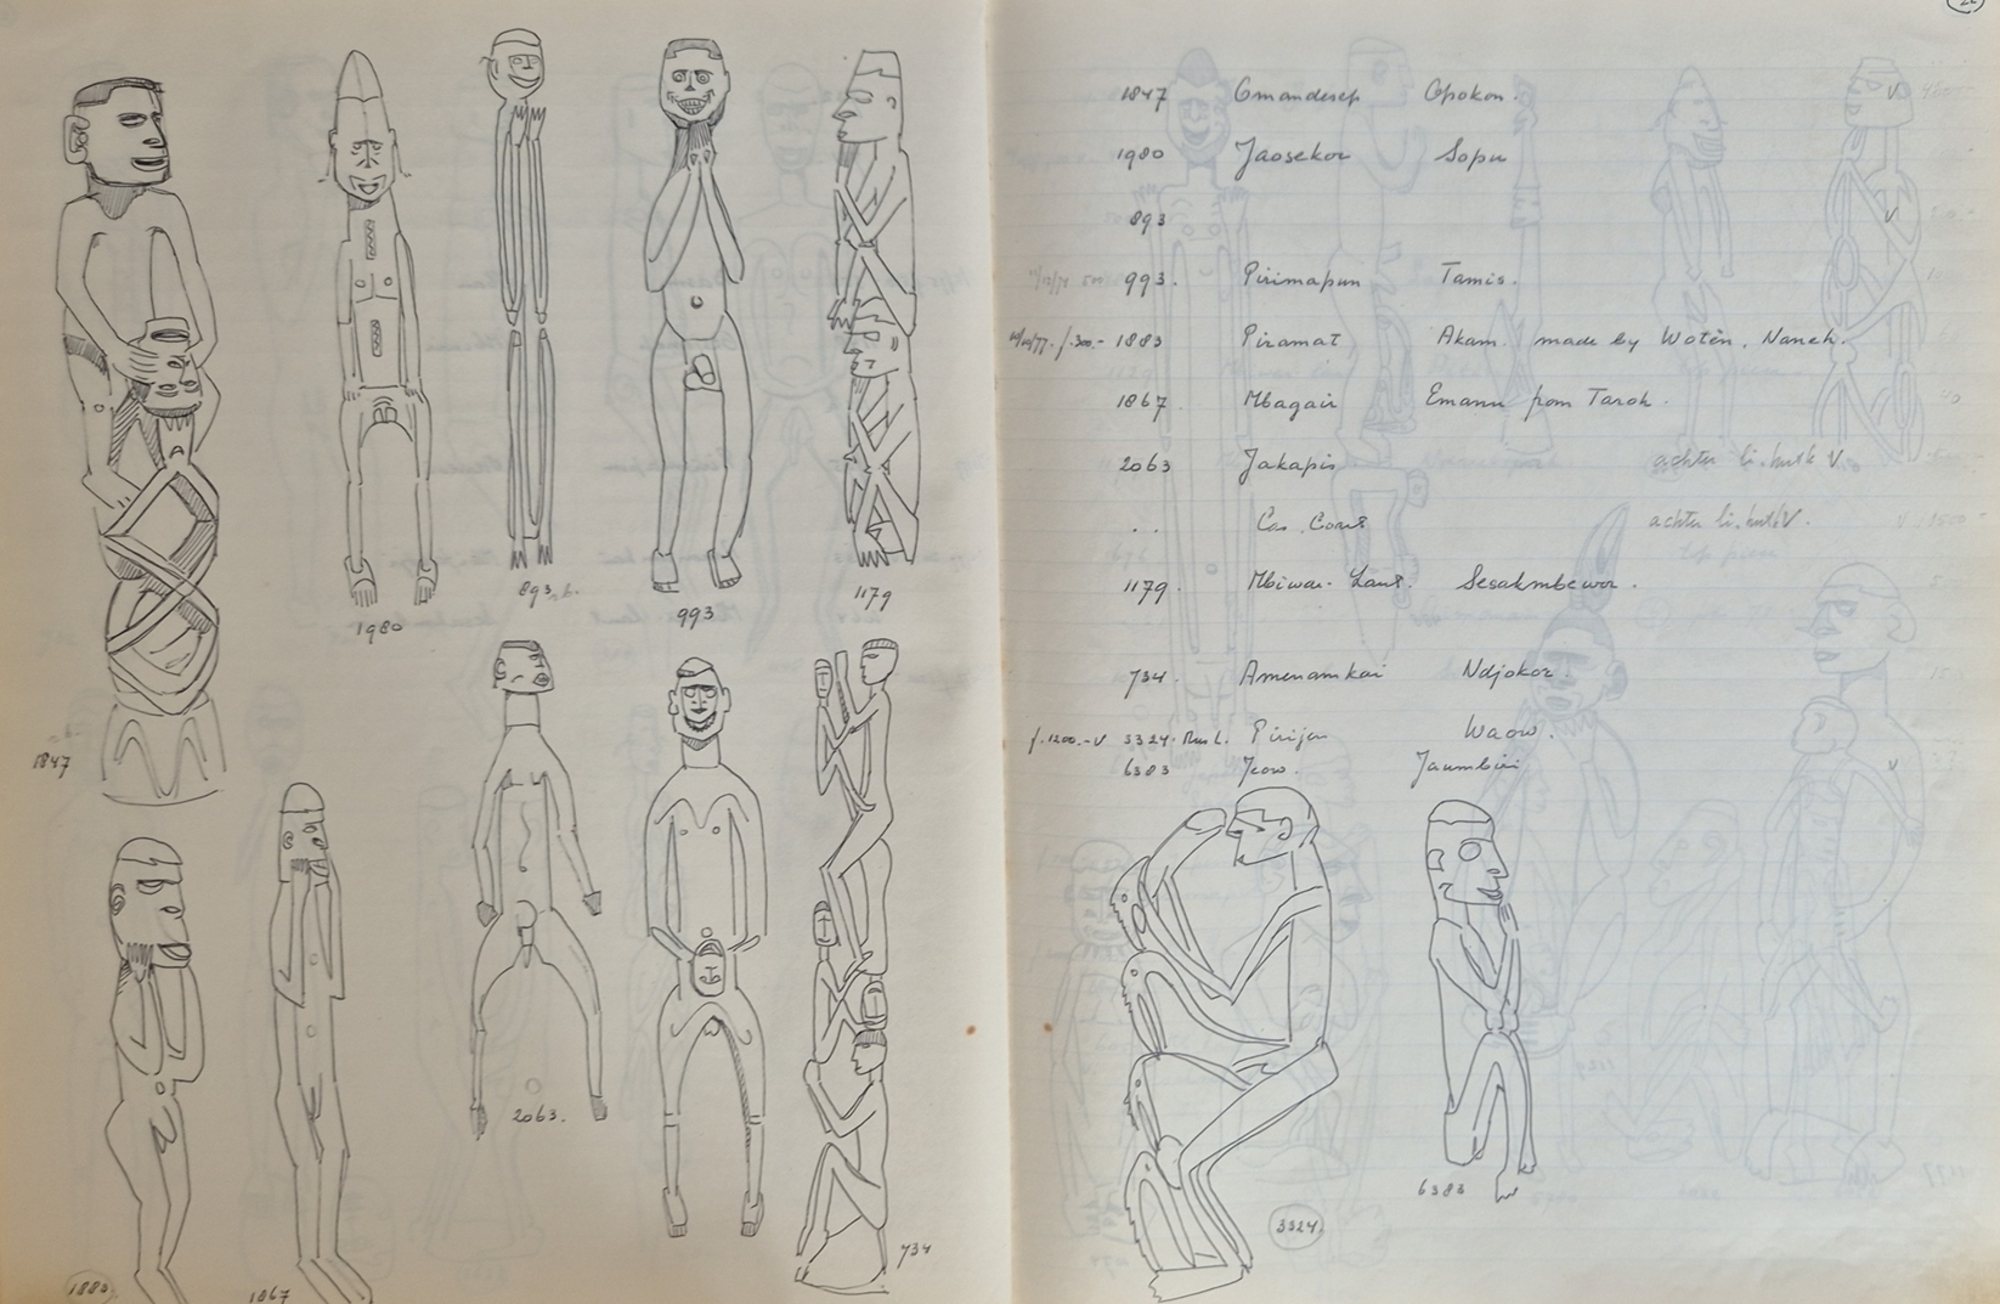 1847
1980
893
993
1179
2063.
734
1883
1867
1847 Omandesep Opokon.
1980 Jaosekor Sopu
893
993. Pirimapun Tamis.
f.300.- 1883 Piramat Akam. made by Wotèn, Naneh.
1867 Mbagair Emanu from Taroh.
2063 Jakapis achter li. V
.. Cas. Coast achter li. V.
1179. Mbiwar-Laut. Sesakmbewor.
734. Amenamkai Ndjokor.
f.1200.-V 3324. Pirijen Waow.
6383 Jeow. Jaumbiri
6383
3324.